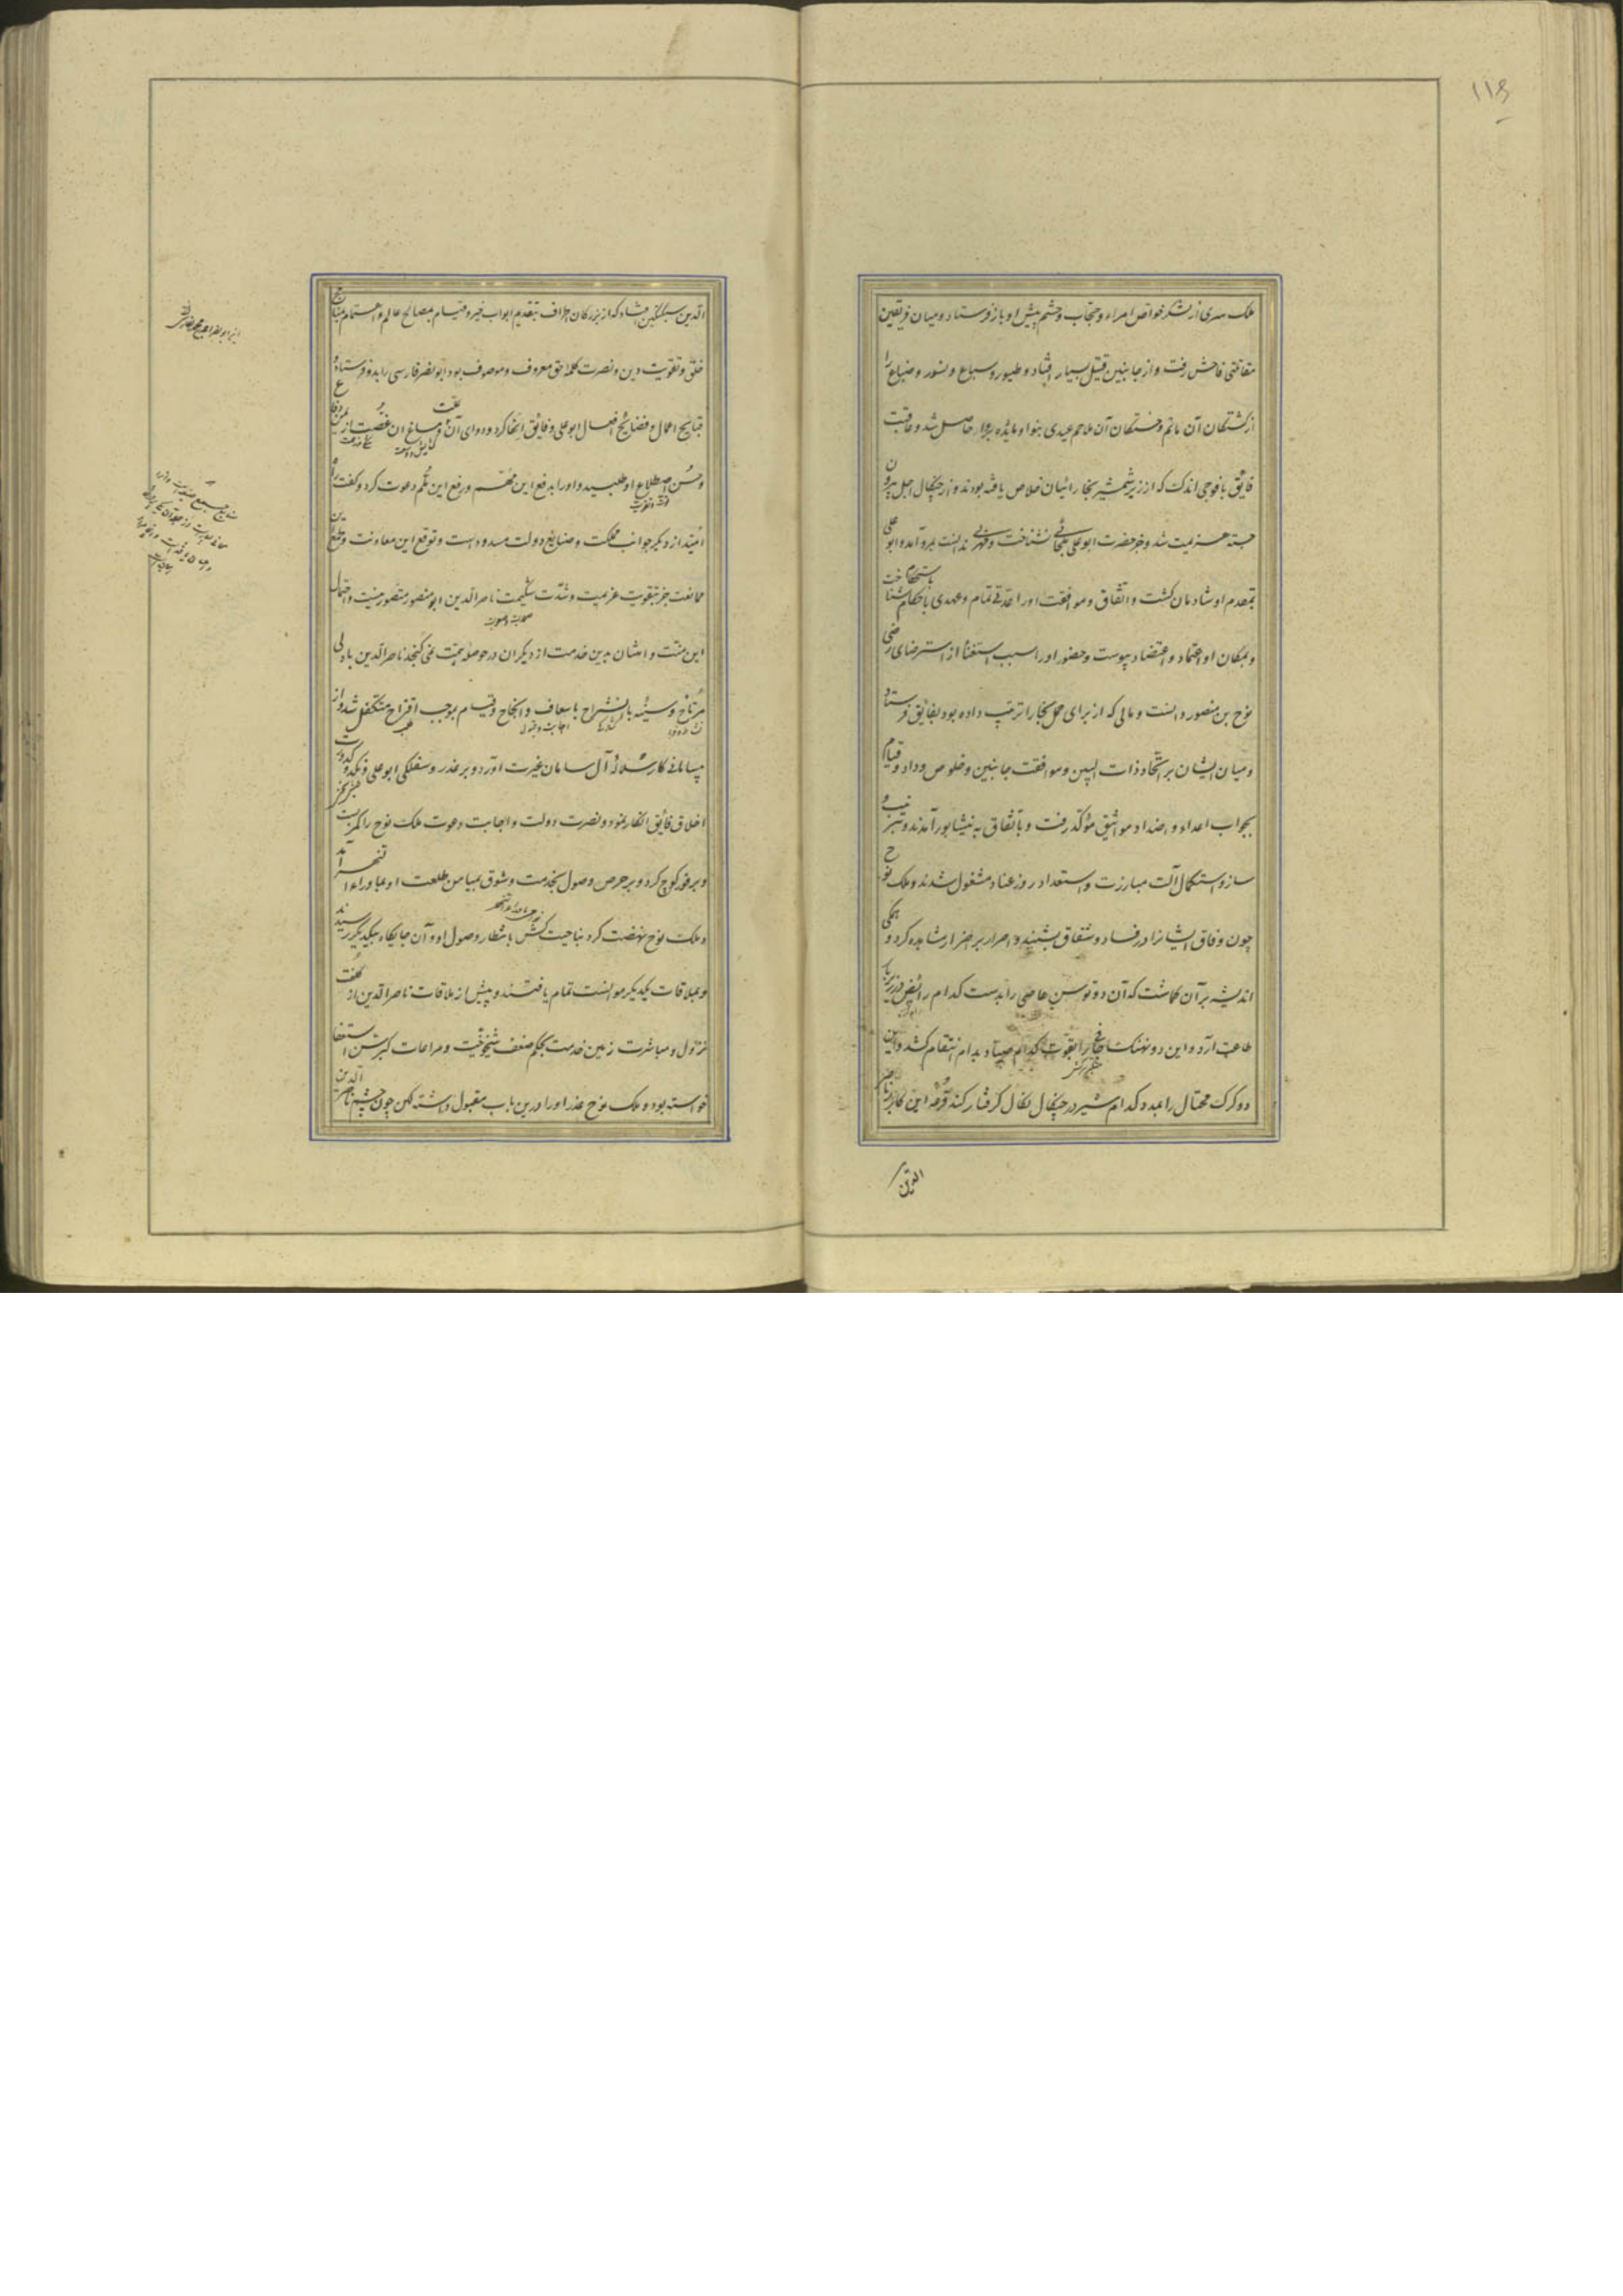 ملک سری از لشکر خواص امراء و حجاب و حشم پیش او باز فرستاد و میان فریقین
مقاتلتی فاحش رفت و از جانبین قتیل بسیار افتاد و طیور و سباع و نسور و ضباع را
از کشتکان آن ماتم و خستکان آن ملاحم عیدی بنوا و مایده حاصل شد و عاقبت
فایق با فوجی اندک که از زیر شمشیر بخارائیان خلاص یافته بودند و از چنکال اجل بیرون
جسته هزیمت شد و جز حضرت ابوعلی ملجائی نشناخت و مهربی ندانست بمرو آمد و ابوعلی
بمقدم او شادمان کشت و اتفاق و موافقت او را عدتی تمام و عهدی باحکام شناخت
و بمکان او اعتماد و اعتضاد پیوست و حضور او را سبب استغنا از استرضای رضی
نوح بن منصور دانست و مالی که از برای حمل بخارا ترتیب داده بود بفایق فرستاد
و میان ایشان بر اتحاد ذات البین و موافقت جانبین و خلوص وداد و قیام
بجواب اعداء و اضداد مواثیق مؤکد رفت و باتفاق به نیشابور آمدند و بترتیب
ساز و استکمال آلت مبارزت و استعداد روز عناد مشغول شدند و ملک نوح
چون وفاق ایشانرا در فساد و شقاق بشنید و اصرار بر اضرار مشاهده کرد و همکی
اندیشه بر آن کماشت که آن دو توسن عاصی را بدست کدام رائض در زیر بار
طاعت آرد و این دو نهنک را بقوت کدام صیاد بدام انتقام کشد و این
دو کرک محتال را بمدد کدام شیر در چنکال نکال کرفتار کند قرعه این کار بر ناصر
الدین
الدین سبکتکین افتاد که از بزرکان اطراف بتقدیم ابواب خیر و قیام بمصالح عالم و اهتمام بمنافع
خلق و تقویت دین و نصرت کلمه حق معروف و موصوف بود ابو نصر فارسی را بدو فرستاد و
قبایح اعمال و فضایح افعال ابوعلی و فایق انها کرد و دوای آن علت و مساغ آن غصت از یمن وفا
و حسن اصطناع او طلبید و او را بدفع این مهم و رفع این ملم دعوت کرد و کفت راه
امید از دیکر جوانب مملکت و صنایع دولت مسدود است و توقع این معاونت و
ممانعت جز بتقویت عزیمت و شدت شکیمت ناصر الدین ابو منصور متصور نیست و احتمال
این منت و امتنان بدین خدمت از دیکران در حوصله همت نمی کنجد ناصر الدین با دلی
مرتاح و سینه بانشراح باسعاف و انجاح و قیام بموجب اقتراح متکفل شد و از
بیسامانی کار سلاله آل سامان غیرت آورد و بر غدر و سفلکی ابوعلی و کدورت
اخلاق فایق انکار نمود و نصرت دولت و اجابت دعوت ملک نوح را کمر بست
و بر فور کوچ کرد و بر حرص وصول بخدمت و شوق بمیامن طلعت او بماوراء النهر آمد
و ملک نوح نهضت کرد بناحیت کش بانتظار وصول او و آن جایکاه بیکدیکر رسیدند
و بملاقات یکدیکر موانست تمام یافتند و پیش از ملاقات ناصر الدین از کلفت
نزول و مباشرت زمین خدمت بحکم ضعف شیخوخیت و مراعات کبر سن استعفا
خواسته بود و ملک نوح عذر او را درین باب مقبول داشته لکن چون چشم ناصر الدین